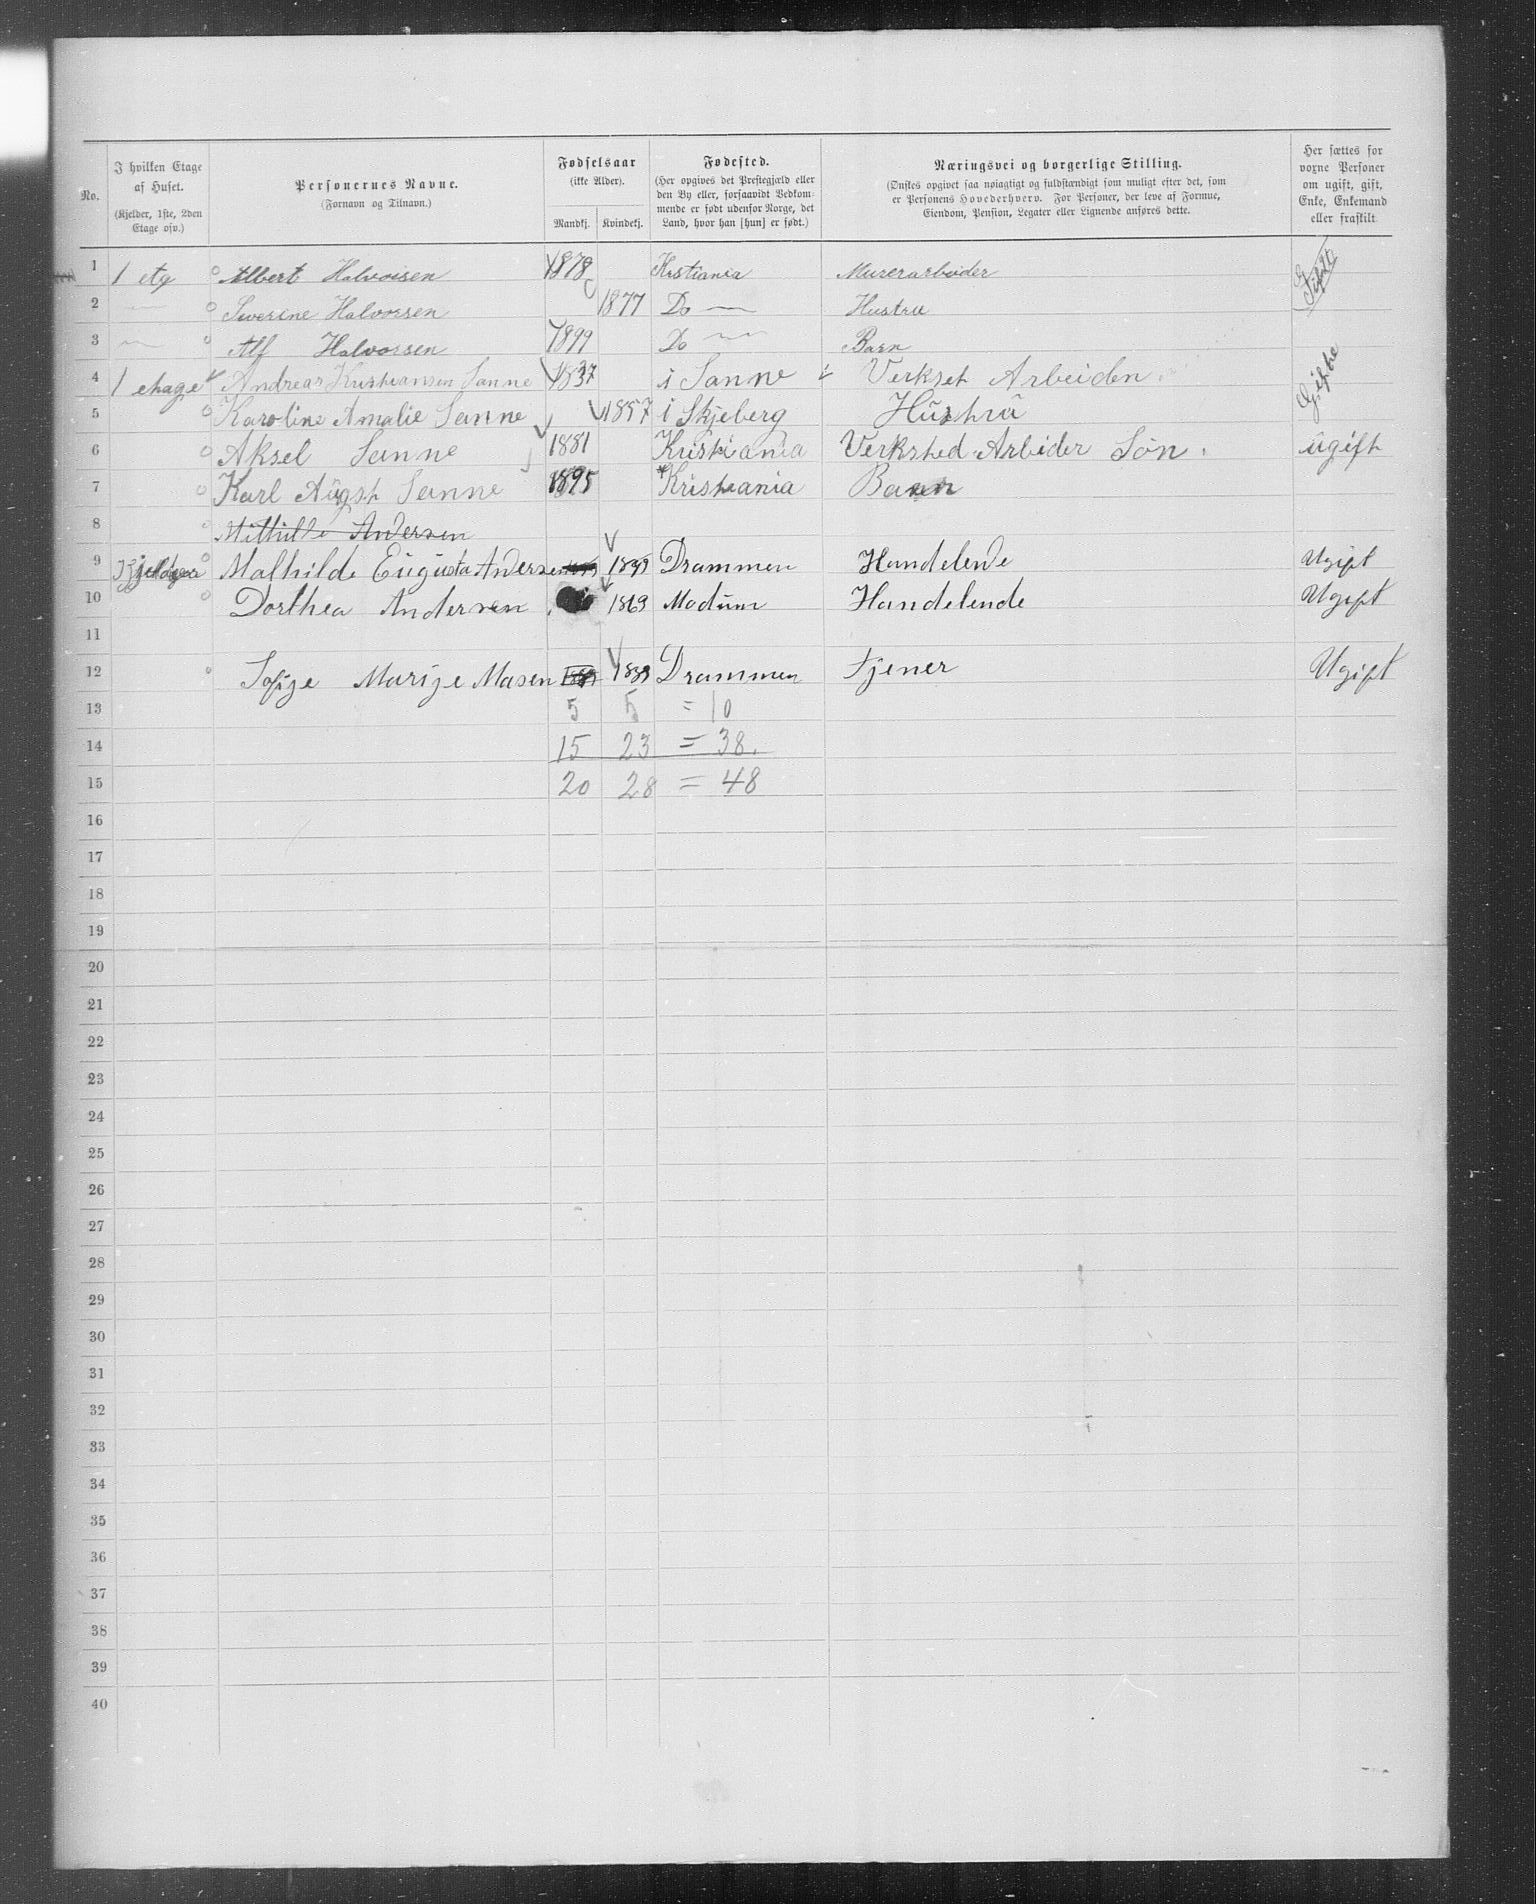 No. I hvilken Etage af Huset. (Kjelder, 1ste, 2den Etage osv.) Personernes Navne. (Fornavn og Tilnavn.) Fødselsaar (ikke Alder). Mandkj. Kvindekj. Fødested. (Her opgives det Prestegjæld eller den By eller, forsaavidt Vedkommende er født udenfor Norge, det Land, hvor han [hun] er født.) Næringsvei og borgerlige Stilling. (Ønskes opgivet saa nøiagtigt og fuldstændigt som muligt efter det, som er Personens Hovederhverv. For Personer, der leve af Formue, Eiendom, Pension, Legater eller Lignende anføres dette. Her sættes for voxne Personer om ugift, gift, Enke, Enkemand eller fraskilt.
1 1 etg Albert Halvorsen 1878 Kristiania Murerarbeider
2 Severine Halvorsen 1877 Do Hustru
3 Alf Halvorsen 1899 Do Barn
4 1 ehage Andreas Kristiansen Sanne 1837 i Sanne Verkset Arbeiden Gifte
5 Karoline Amalie Sanne 1857 i Skjeberg Hustru
6 Aksel Sanne 1881 Kristiania Verksted Arbider Søn. ugift
7 Karl Augst Sanne 1895 Kristiania Barn
8 Mathilde Andersen
9 Mathilde Eugusta Andersen 1899 Drammen Handelende Ugift
10 Dorthea Andersen 1869 Modum Handelende Ugift
11
12 Sofije Marije Masen 1889 Drammen Tjener Ugift
13 5 5 = 10
14 15 23 = 38.
15 20 28 = 48
16
17
18
19
20
21
22
23
24
25
26
27
28
29
30
31
32
33
34
35
36
37
38
39
40